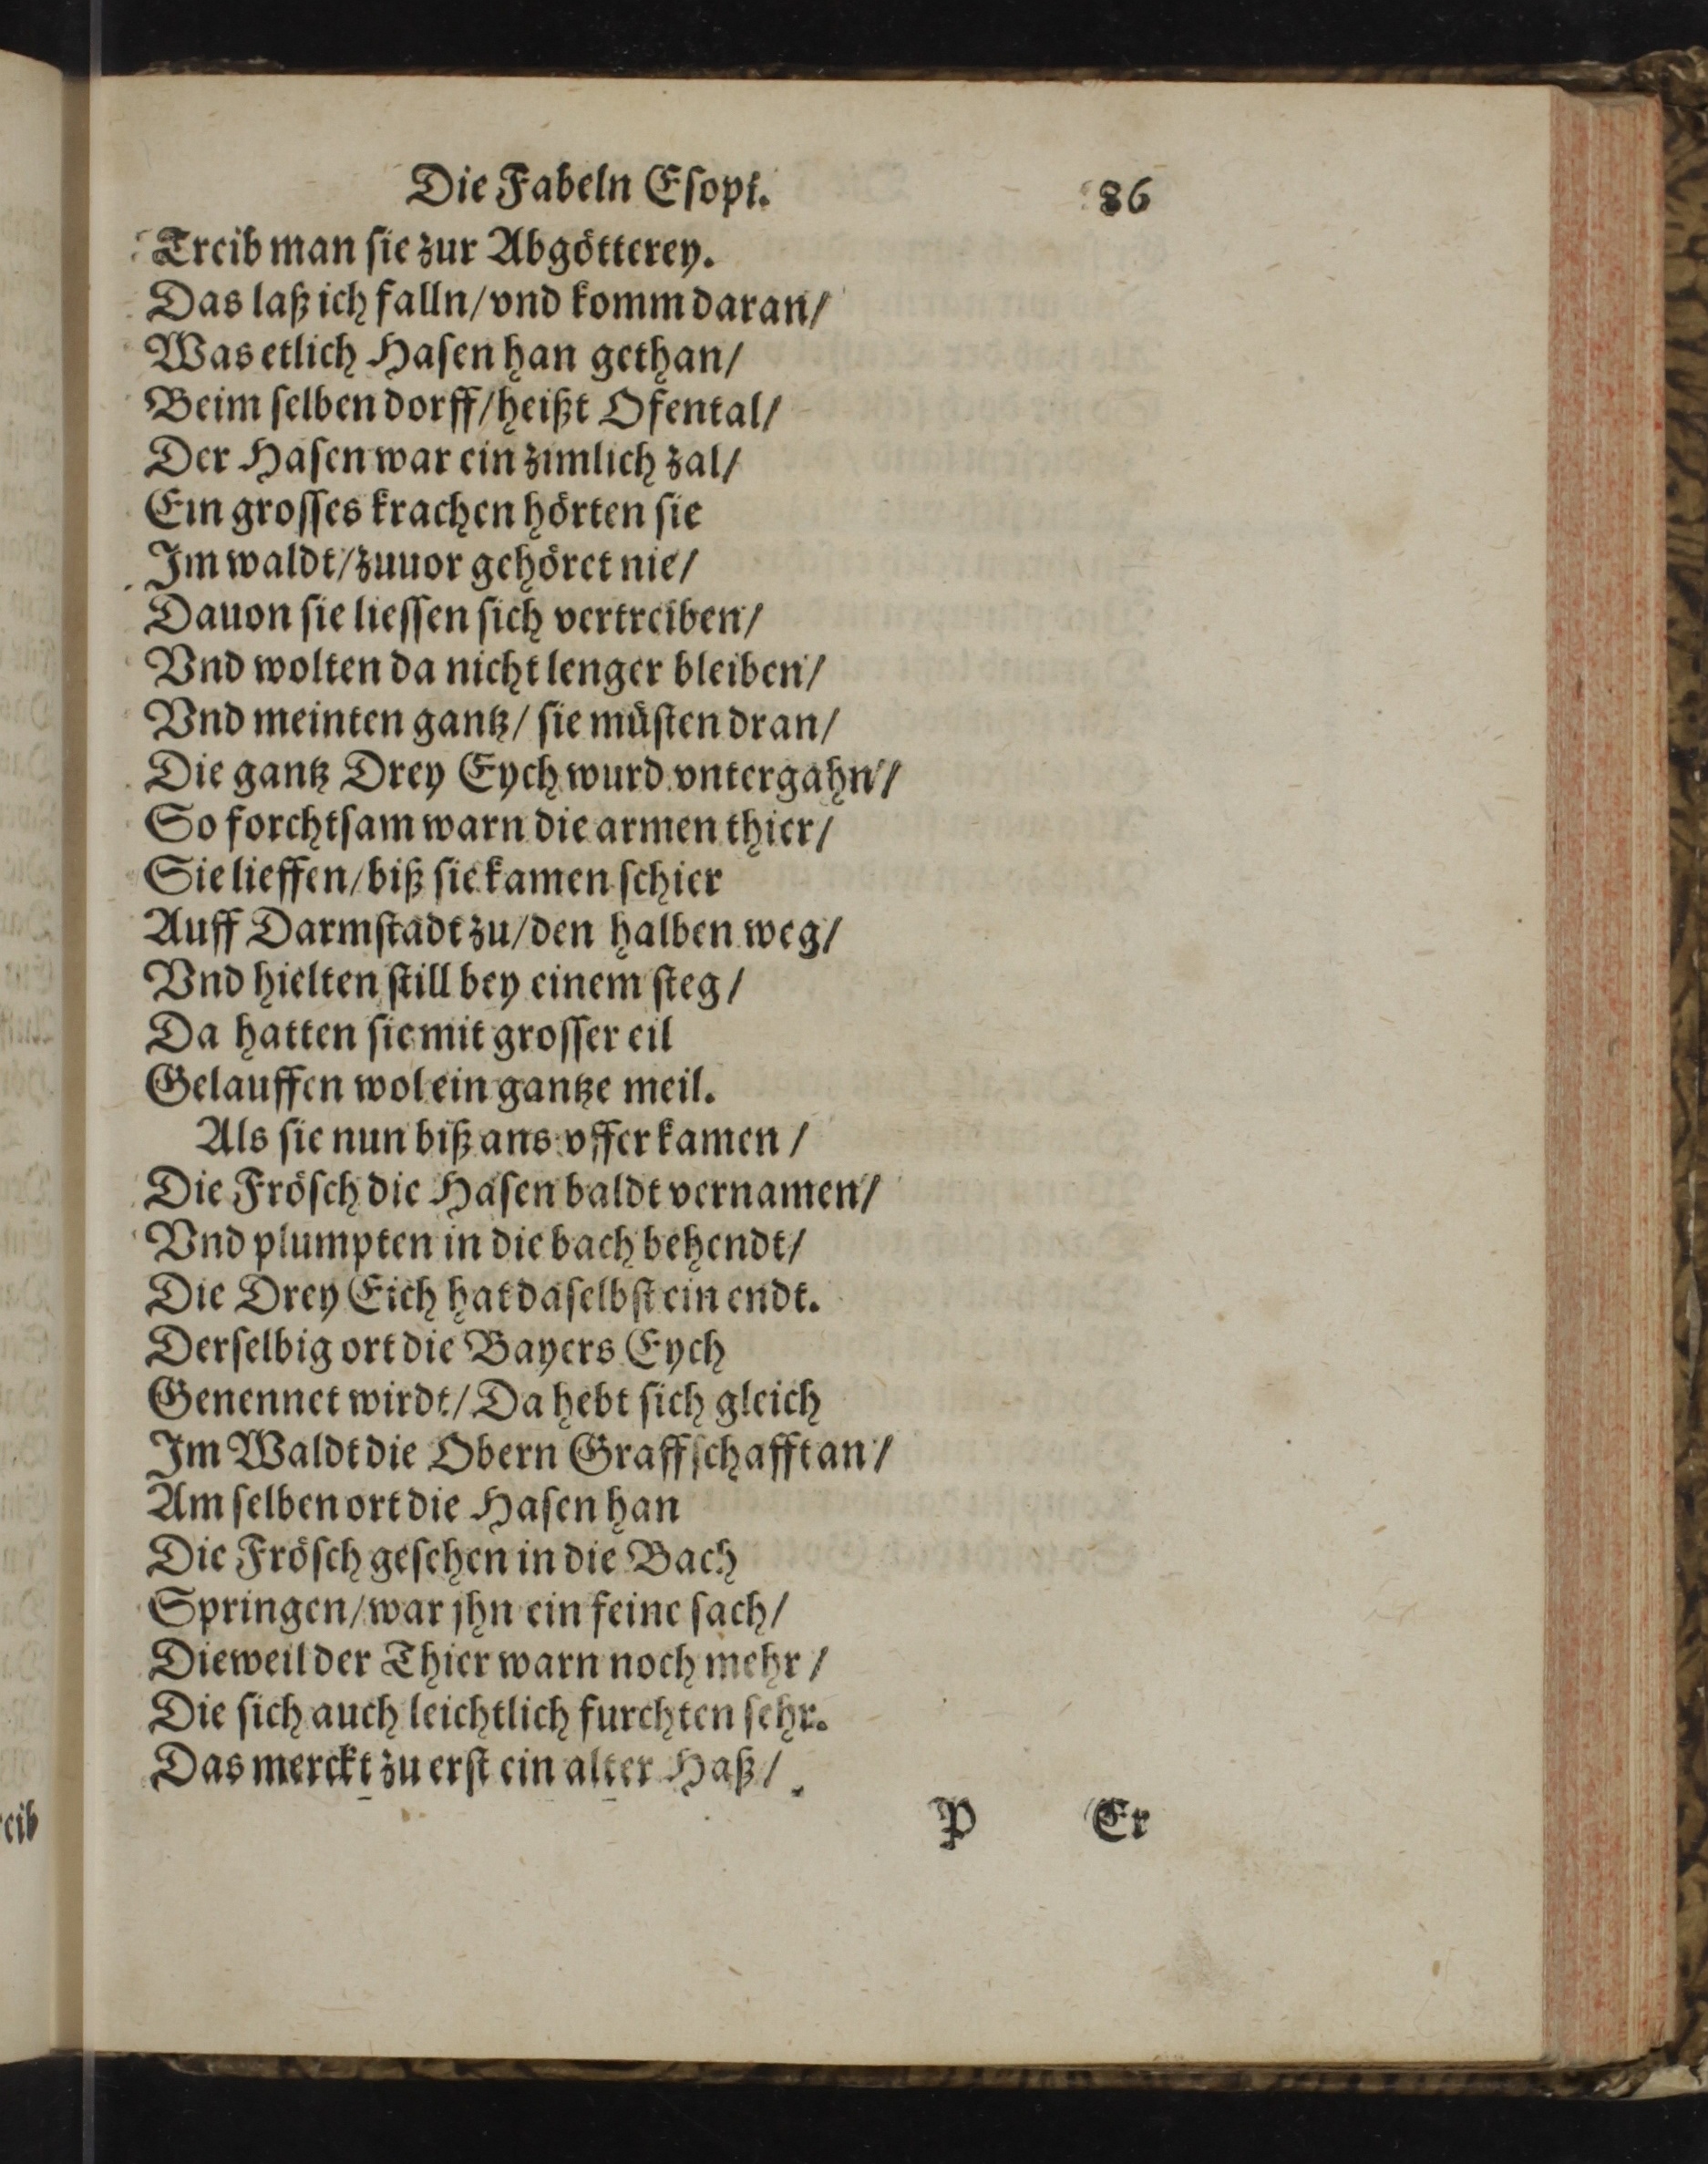 Die Fabeln Eſopi. 86
Treib man ſie zur Abgötterey.
Das laß ich falln/ vnd komm daran/
Was etlich Haſen han gethan/
Beim ſelben dorff/ heißt Ofental/
Der Haſen war ein zimlich zal/
Ein groſſes krachen hörten ſie
Im waldt/ zuuor gehöret nie/
Dauon ſie lieſſen ſich vertreiben/
Vnd wolten da nicht lenger bleiben/
Vnd meinten gantz/ ſie müſten dran/
Die gantz Drey Eych wurd vntergahn/
So forchtſam warn die armen thier/
Sie lieffen/ biß ſie kamen ſchier
Auff Darmſtadt zu/ den halben weg/
Vnd hielten ſtill bey einem ſteg/
Da hatten ſie mit groſſer eil
Gelauffen wol ein gantze meil.
Als ſie nun biß ans vffer kamen/
Die Fröſch die Haſen baldt vernamen/
Vnd plumpten in die bach behendt/
Die Drey Eich hat daſelbſt ein endt.
Derſelbig ort die Bayers Eych
Genennet wirdt/ Da hebt ſich gleich
Im Waldt die Obern Graffſchafft an/
Am ſelben ort die Haſen han
Die Fröſch geſehen in die Bach
Springen/ war jhn ein feine ſach/
Dieweil der Thier warn noch mehr/
Die ſich auch leichtlich furchten ſehr.
Das merckt zu erſt ein alter Haß/
P Er